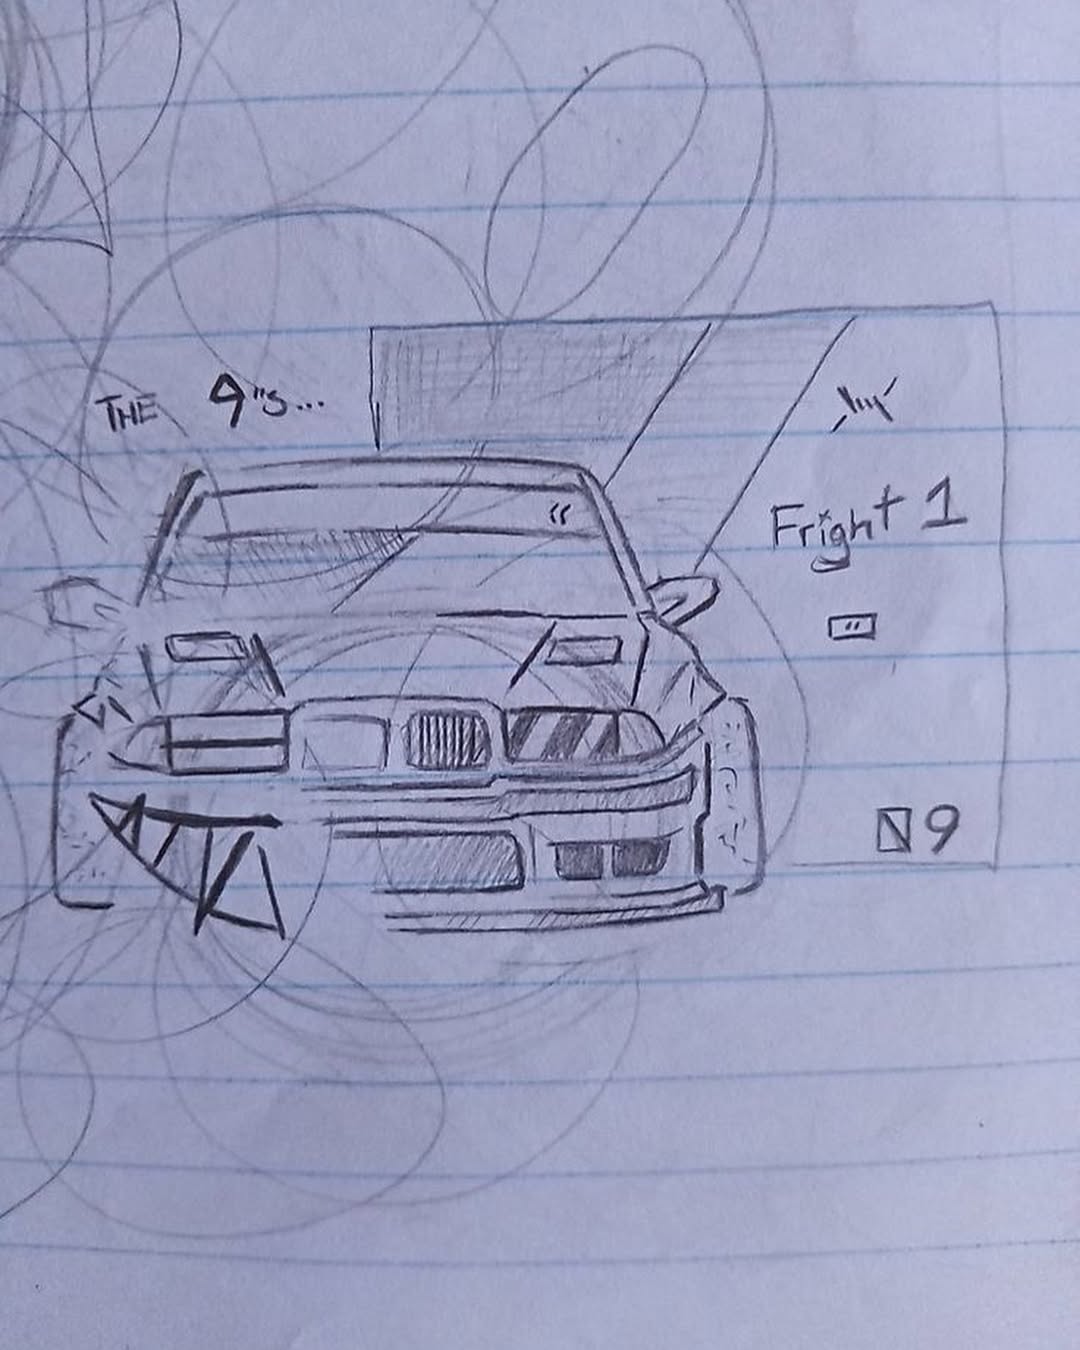 THE 9"s...
Fright 1
N9